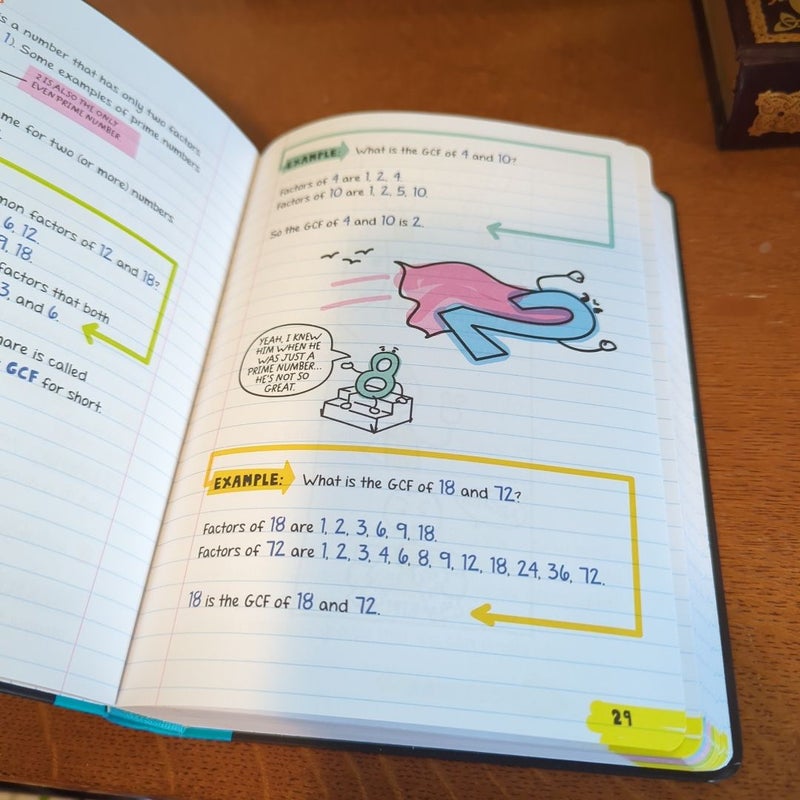 s a number that has only two factors
1). Some examples of prime numbers
2 IS ALSO THE ONLY
EVEN PRIME NUMBER
me for two (or more) numbers
mon factors of 12 and 18?
6, 12.
9, 18.
factors that both
3, and 6.
hare is called
GCF for short.
EXAMPLE: What is the GCF of 4 and 10?
Factors of 4 are 1, 2, 4.
Factors of 10 are 1, 2, 5, 10.
So the GCF of 4 and 10 is 2.
2
YEAH, I KNEW
HIM WHEN HE
WAS JUST A
PRIME NUMBER...
HE'S NOT SO
GREAT.
8
EXAMPLE: What is the GCF of 18 and 72?
Factors of 18 are 1, 2, 3, 6, 9, 18.
Factors of 72 are 1, 2, 3, 4, 6, 8, 9, 12, 18, 24, 36, 72.
18 is the GCF of 18 and 72.
29